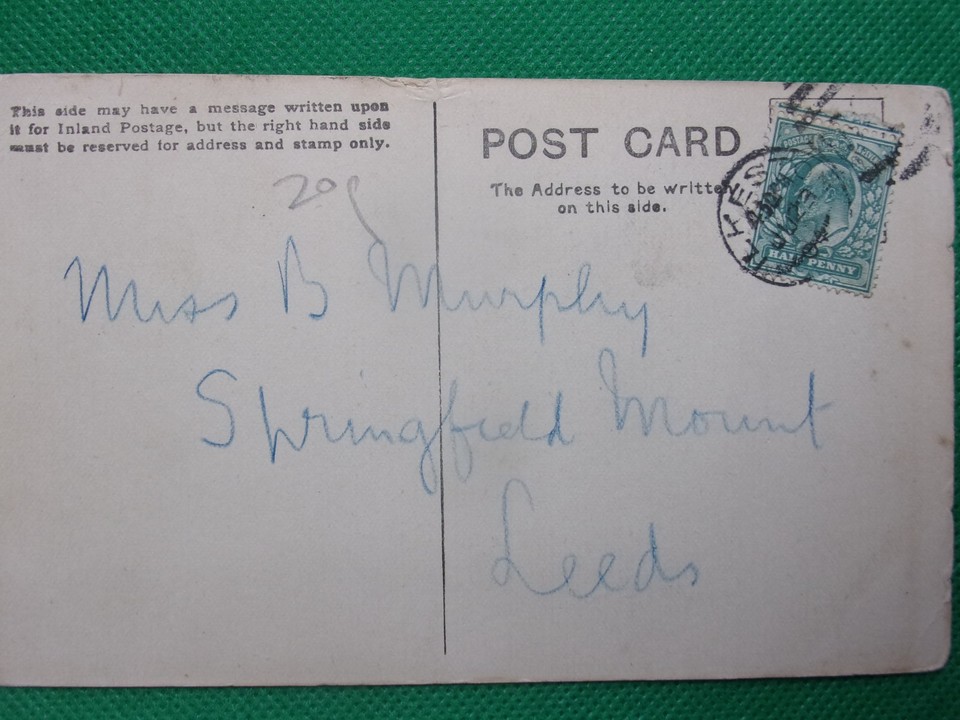 This side may have a message written upon
it for Inland Postage, but the right hand side
must be reserved for address and stamp only.
POST CARD
The Address to be written
on this side.
HALFPENNY
Miss B Murphy
Springfield Mount
Leeds